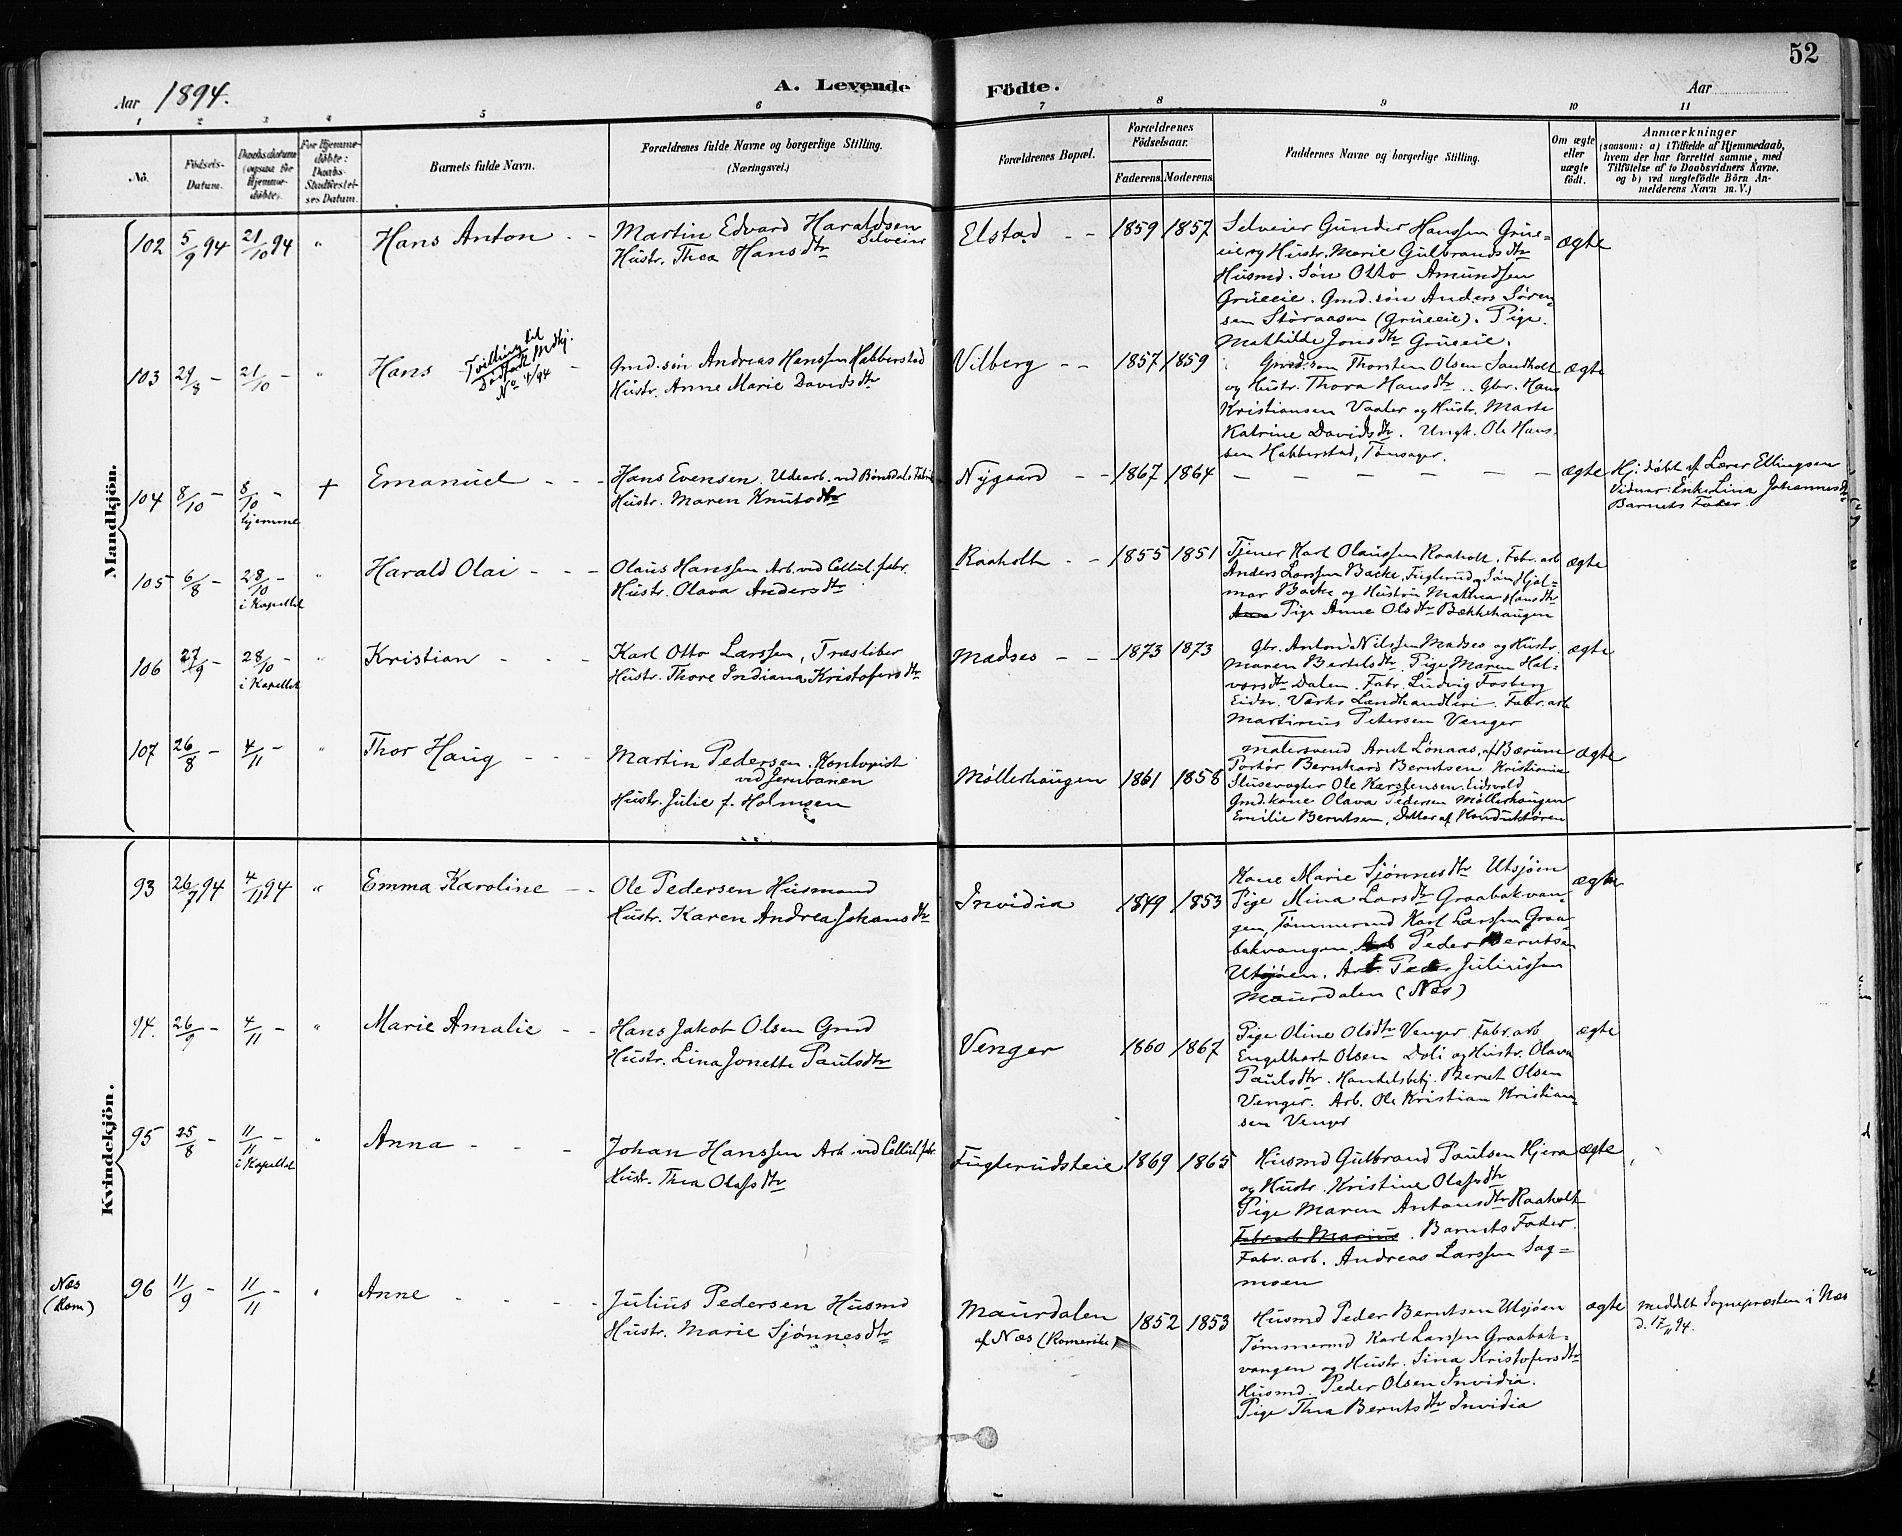 52
Aar 1894.
A. Levende
Födte.
Aar
1 2 3 4 5 6 7 8 9 10 11
No.
Födsels-
Datum.
Daabsdatum
(ogsaa for
Hjemme-
döbte).
For Hjemme-
döbte:
Daabs-
Stadfæstel-
ses Datum.
Barnets fulde Navn.
Forældrenes fulde Navne og borgerlige Stilling.
(Næringsvei.)
Forældrenes Bopæl.
Forældrenes
Födselsaar.
Faderens.
Moderens.
Faddernes Navne og borgerlige Stilling.
Om ægte
eller
uægte
født.
Anmærkninger
(saasom: a) i Tilfælde af Hjemmedaab,
hvem der har forrettet samme, med
Tilföielse af to Daabsvidners Navne,
og b) ved uægtefödte Börn An-
melderens Navn m. V.)
Mandkjön.
102 5/9 94 21/10 94 " Hans Anton - -
Martin Edvard Haraldsen
Selveier
Hustr. Thea Hansdtr
Elstad - - 1859 1857
Selveier Gunder Hanssen Grue-
eie og Hustr. Marie Gulbrandsdtr
Husmd. Søn Otto Amundsen
Grueeie. Gmd. søn Anders Søren-
sen Støraasen (Grueeie). Pige
Mathilde Jonsdtr Grueeie.
ægte
103 29/8 - 21/10 - " Hans
Tvilling til
Dødfødt Mdkj.
No 4/94
Gmd. søn Andreas Hanssen Habberstad
Hustr. Anne Marie Davidsdtr
Vilberg - - 1857 1859
Gmd. søn Thorsten Olsen Sandholt
og Hustr. Thora Hansdtr. Gbr. Hans
Kristiansen Vaaler og Hustr. Marte
Katrine Davidsdtr. Ungk. Ole Hans-
sen Habberstad, Tønsager.
ægte
104 8/10 - 8/10 -
hjemme
+ Emanuel - - -
Hans Evensen. Udearb. ved Bønsdals Fabrik
Hustr. Maren Knutsdtr
Nygaard - - 1867 1864 - - - - - -
ægte
Hj: døbt af Lærer Ellingsen
Vidner: Enke Lina Johannesdtr
Barnets Fader.
105 6/8 - 28/10 -
i Kapellet
" Harald Olai - - -
Olaus Hanssen Arb. ved Cellul. fabr.
Hustr. Olava Andersdtr
Raaholt - - 1855 1851
Tjener Karl Olaussen Raaholt. Fabr. arb
Anders Larssen Bække, Fuglerud, Søn Hjal-
mar Bække og Hustru Mathea Hansdtr
Pige Anne Olsdtr Bækkehaugen
ægte
106 27/9 - 28/10 -
i Kapellet
" Kristian - - -
Karl Otto Larssen, Træsliber
Hustr. Thore Indiana Kristofersdtr
Madses - - 1873 1873
Gbr. Anton Nilssen Madses og Hustr.
Maren Bertelsdtr. Pige Maren Hal-
vorsdtr Dalen. Fabr. Ludvig Fosberg
Eidsv. Værks Landhandleri. Fabr. arb
Martinius Petersen Venger
ægte
107 26/8 - 4/11 - " Thor Haug - - -
Martin Pedersen. Kontorist
ved Jernbanen
Hustr. Julie f. Holmsen
Møllerhaugen 1861 1858
Malersvend Arnt Lønaas, af Bærum
Portør Bernhard Berntsen Kristiania
Slusevogter Ole Karstensen Eidsvold
Gmd. kone Olava Pedersen Møllerhaugen
Emilie Berntsen, Datter af Konduktøren
ægte
Kvindekjön.
93 26/7 94 4/11 94 " Emma Karoline - -
Ole Pedersen Husmand
Hustr. Karen Andrea Johansdtr
Invidia 1849 1853
Kone Marie Sjønnesdtr Utsjøen
Pige Mina Larsdtr Graabakvan-
gen, Tømmermd Karl Larssen Graa-
bakvangen. Arb Peder Berntsen
Utsjøen. Arb. Peder Juliussen
Maurdalen (Næs)
ægte
94. 26/9 - 4/11 - " Marie Amalie - -
Hans Jakob Olsen Gmd
Hustr. Lina Jonette Paulsdtr
Venger 1860 1867
Pige Oline Olsdtr Venger. Fabr. arb
Engelhart Olsen Doli og Hustr. Olava
Paulsdtr. Handelsbetj. Bernt Olsen
Venger. Arb. Ole Kristian Kristian-
sen Venger
ægte
95 25/8 - 11/11 -
i Kapellet
" Anna - - -
Johan Hanssen Arb. ved Cellul. fabr.
Hustr. Thea Olafsdtr
Fuglerudseie 1869 1865
Husmd Gulbrand Paulsen Hjera
og Hustr. Kristine Olafsdtr
Pige Maren Antonsdtr Raaholt
Fabr. arb Marius. Barnets Fader.
Fabr. arb. Andreas Larssen Sag-
moen
ægte
Næs
(Rom)
96 11/9 - 11/11 - " Anne - - - -
Julius Pedersen Husmd
Hustr. Marie Sjønnesdtr
Maurdalen
af Næs (Romerike)
1852 1853
Husmd Peder Berntsen Utsjøen
Tømmermd Karl Larssen Graabak-
vangen og Hustr. Lina Kristofersdtr
Husmd. Peder Olsen Invidia.
Pige Thea Berntsdtr Invidia
ægte
meddelt Sognepræsten i Næs
d. 17/11 94.